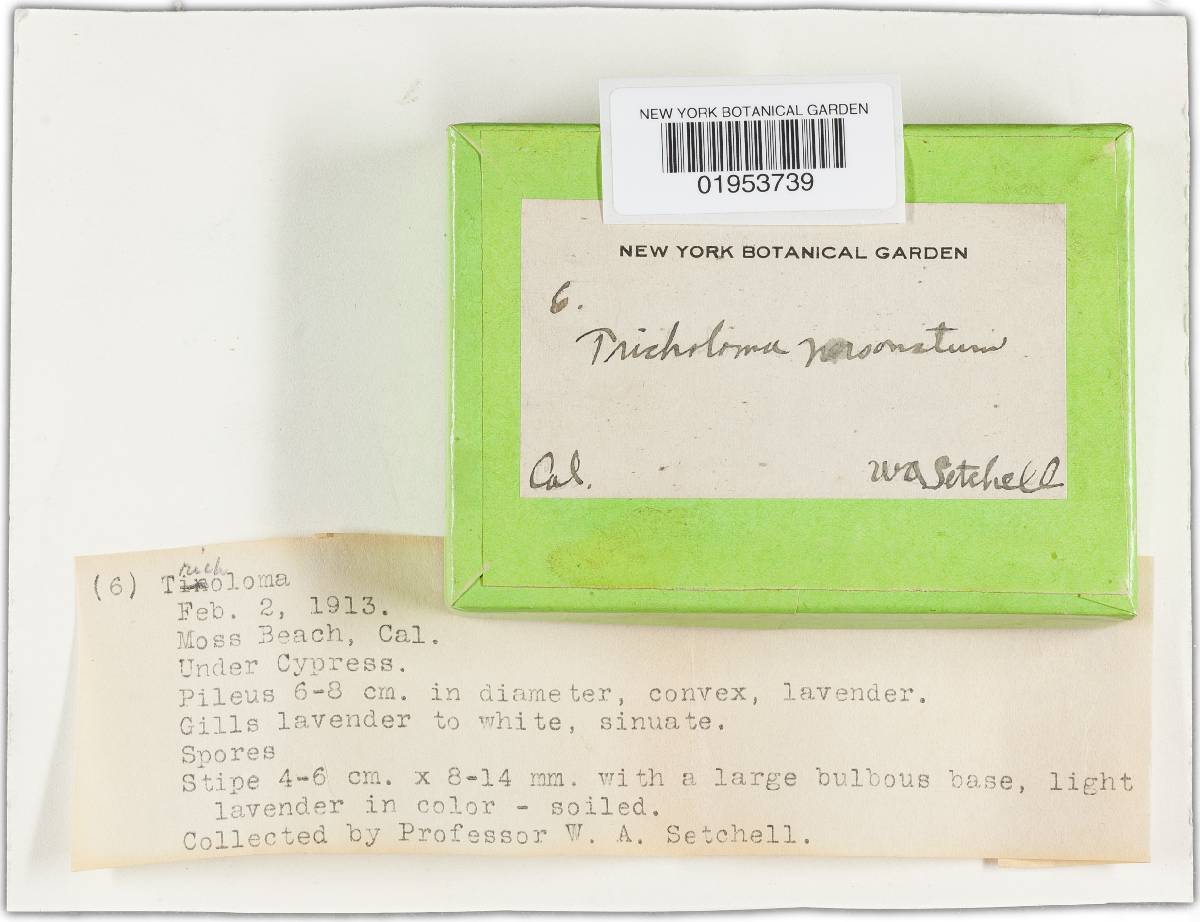 NEW YORK BOTANICAL GARDEN
01953739
NEW YORK BOTANICAL GARDEN
6.
Tricholoma personatum
Cal. W A Setchell
(6) Tricholoma
Feb. 2, 1913.
Moss Beach, Cal.
Under Cypress.
Pileus 6-8 cm. in diameter, convex, lavender.
Gills lavender to white, sinuate.
Spores
Stipe 4-6 cm. x 8-14 mm. with a large bulbous base, light
lavender in color - soiled.
Collected by Professor W. A. Setchell.